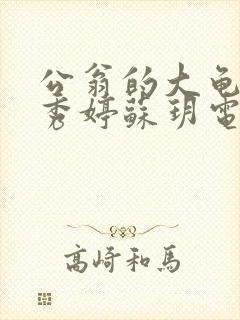 公翁的大龟
秀婷蘇玥電
高崎和馬